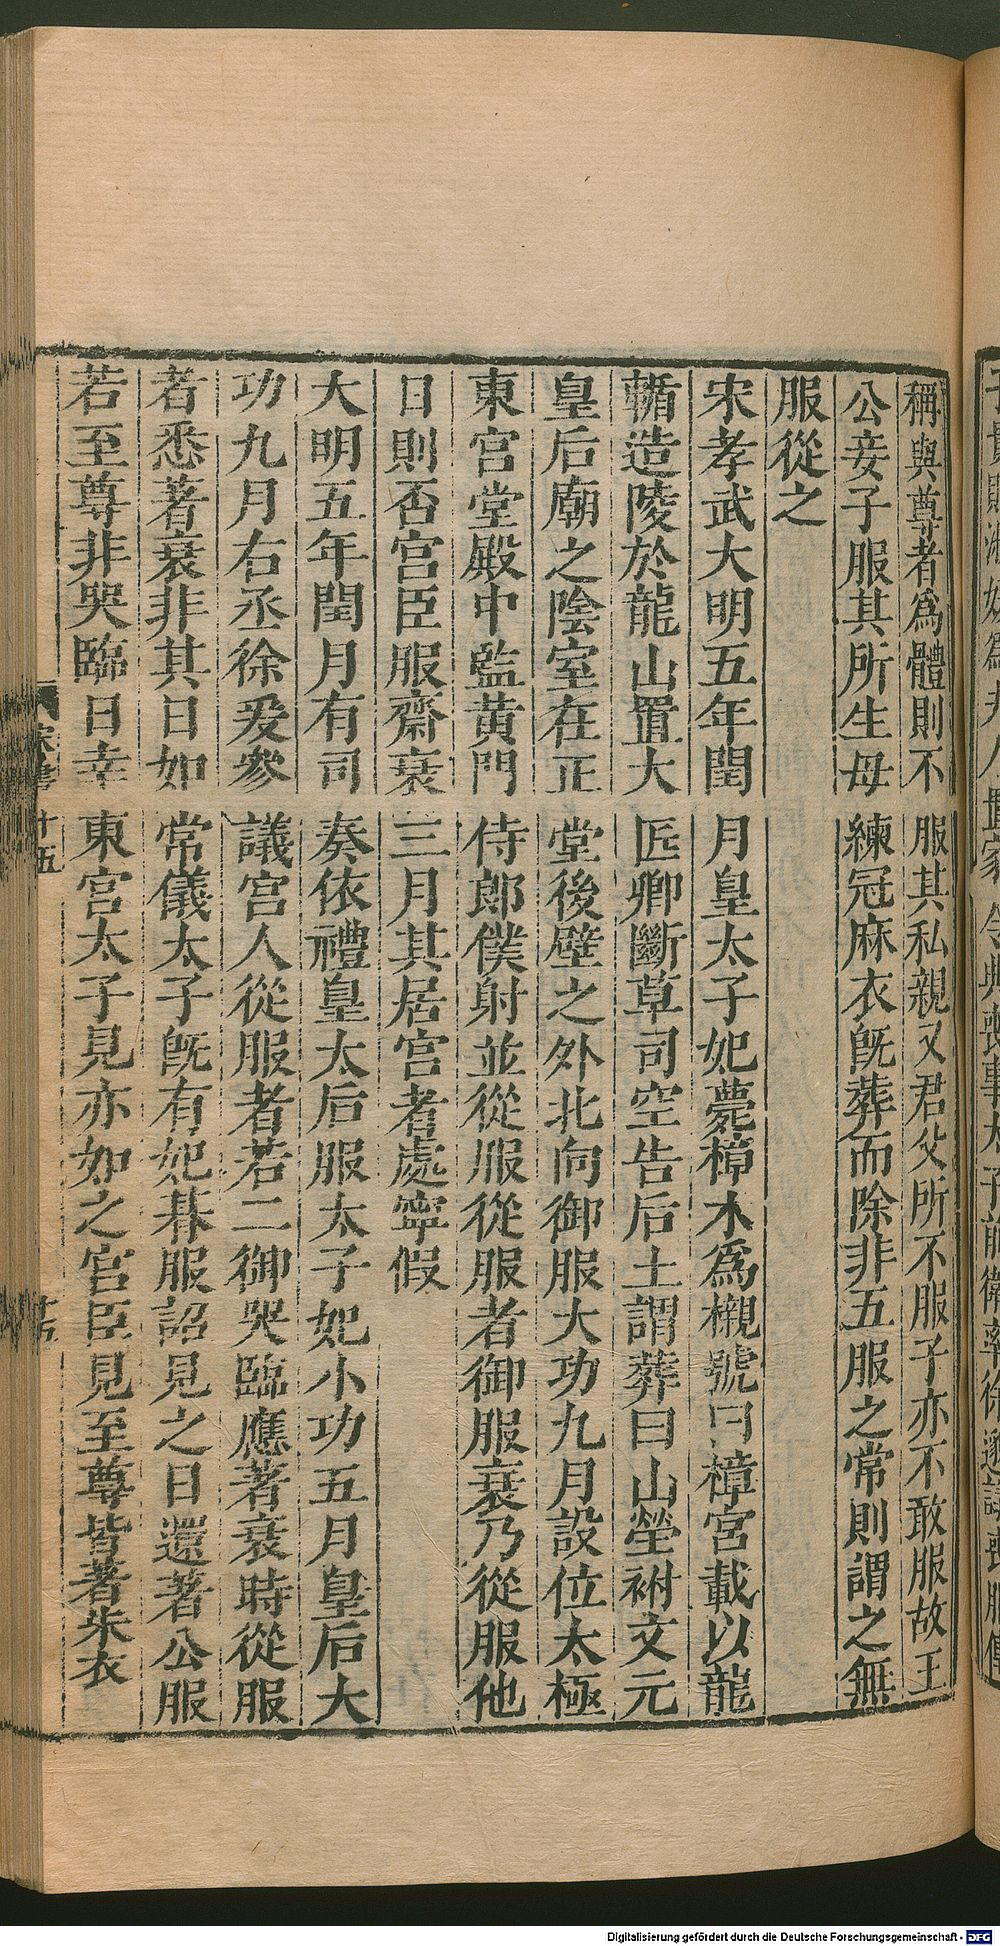 稱與尊者爲體則不服其私親又君父所不服子亦不敢服故王
公妾子服其所生母練冠麻衣旣葬而除非五服之常則謂之無
服從之
宋孝武大明五年閏月皇太子妃薨樟木爲櫬號曰樟宮載以龍
輴造陵於龍山置大匠卿斷草司空告后土謂葬曰山塋祔文元
皇后廟之陰室在正堂後壁之外北向御服大功九月設位太極
東宮堂殿中監黄門侍郎僕射並從服從服者御服衰乃從服他
日則否宮臣服齋衰三月其居宮者處寧假
大明五年閏月有司奏依禮皇太后服太子妃小功五月皇后大
功九月右丞徐爰參議宮人從服者若二御哭臨應著衰時從服
者悉著衰非其日如常儀太子旣有妃朞服詔見之日還著公服
若至尊非哭臨日幸東宮太子見亦如之宮臣見至尊皆著朱衣
宋書 十五
Digitalisierung gefördert durch die Deutsche Forschungsgemeinschaft - DFG